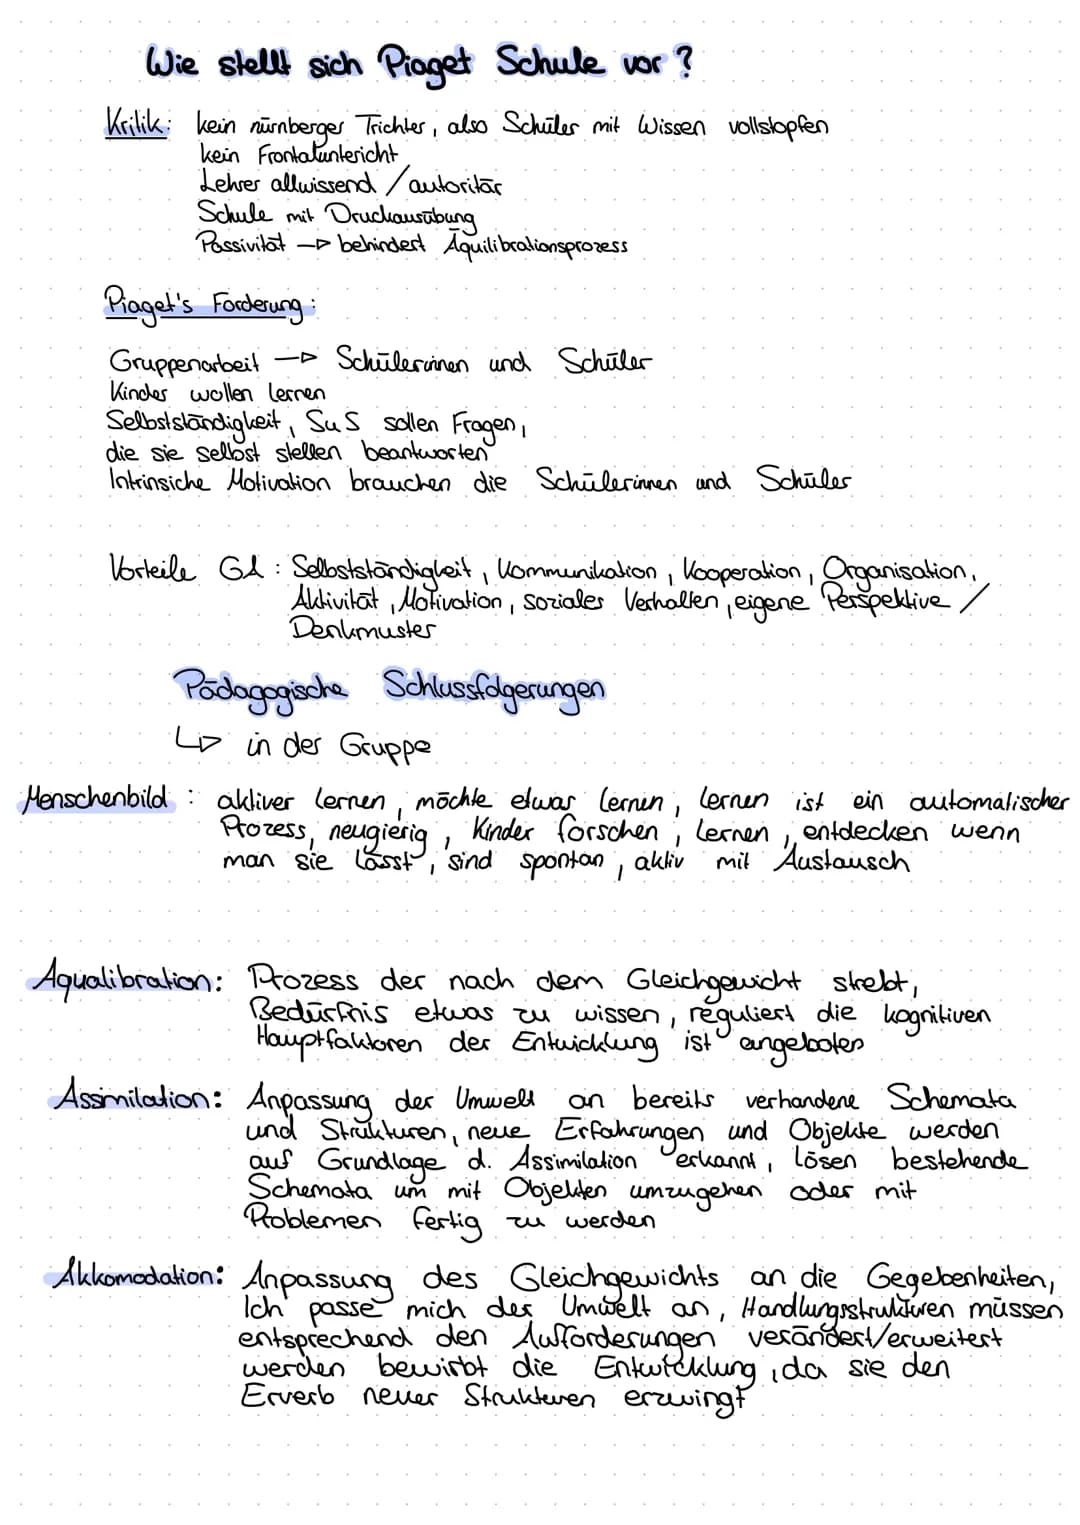 Wie stellt sich Piaget Schule vor?
Kritik: kein nürnberger Trichter, also Schüler mit Wissen vollstopfen
kein Frontalunterricht
Lehrer allwissend / autoritär
Schule mit Druckausübung
Passivität → behindert Äquilibrationsprozess
Piaget's Forderung:
Gruppenarbeit → Schülerinnen und Schüler
Kinder wollen lernen
Selbstständigkeit, SuS sollen Fragen,
die sie selbst stellen beantworten
Intrinsiche Motivation brauchen die Schülerinnen und Schüler
Vorteile GA: Selbstständigkeit, Kommunikation, Kooperation, Organisation,
Aktivität, Motivation, soziales Verhalten, eigene Perspektive /
Denkmuster
Pädagogische Schlussfolgerungen
↳ in der Gruppe
Menschenbild: aktiver lernen, möchte etwas lernen, lernen ist ein automatischer
Prozess, neugierig, Kinder forschen, lernen, entdecken wenn
man sie lässt, sind spontan, aktiv mit Austausch
Äqualibration: Prozess der nach dem Gleichgewicht strebt,
Bedürfnis etwas zu wissen, reguliert die kognitiven
Hauptfaktoren der Entwicklung ist angeboten
Assimilation: Anpassung der Umwelt an bereits verhandene Schemata
und Strukturen, neue Erfahrungen und Objekte werden
auf Grundlage d. Assimilation erkannt, lösen bestehende
Schemata um mit Objekten umzugehen oder mit
Problemen fertig zu werden
Akkomodation: Anpassung des Gleichgewichts an die Gegebenheiten,
Ich passe mich der Umwelt an, Handlungsstrukturen müssen
entsprechend den Aufforderungen verändert/erweitert
werden bewirbt die Entwicklung, da sie den
Erverb neuer Strukturen erzwingt